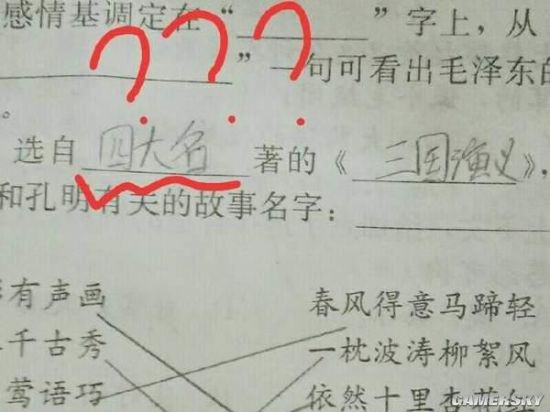 感情基调定在“________”字上，从
________”一句可看出毛泽东的
???
。
选自四大名著的《三国演义》，
和孔明有关的故事名字：________
有声画
春风得意马蹄轻
千古秀
一枕波涛柳絮风
莺语巧
依然十里杏花红
GAMERSKY